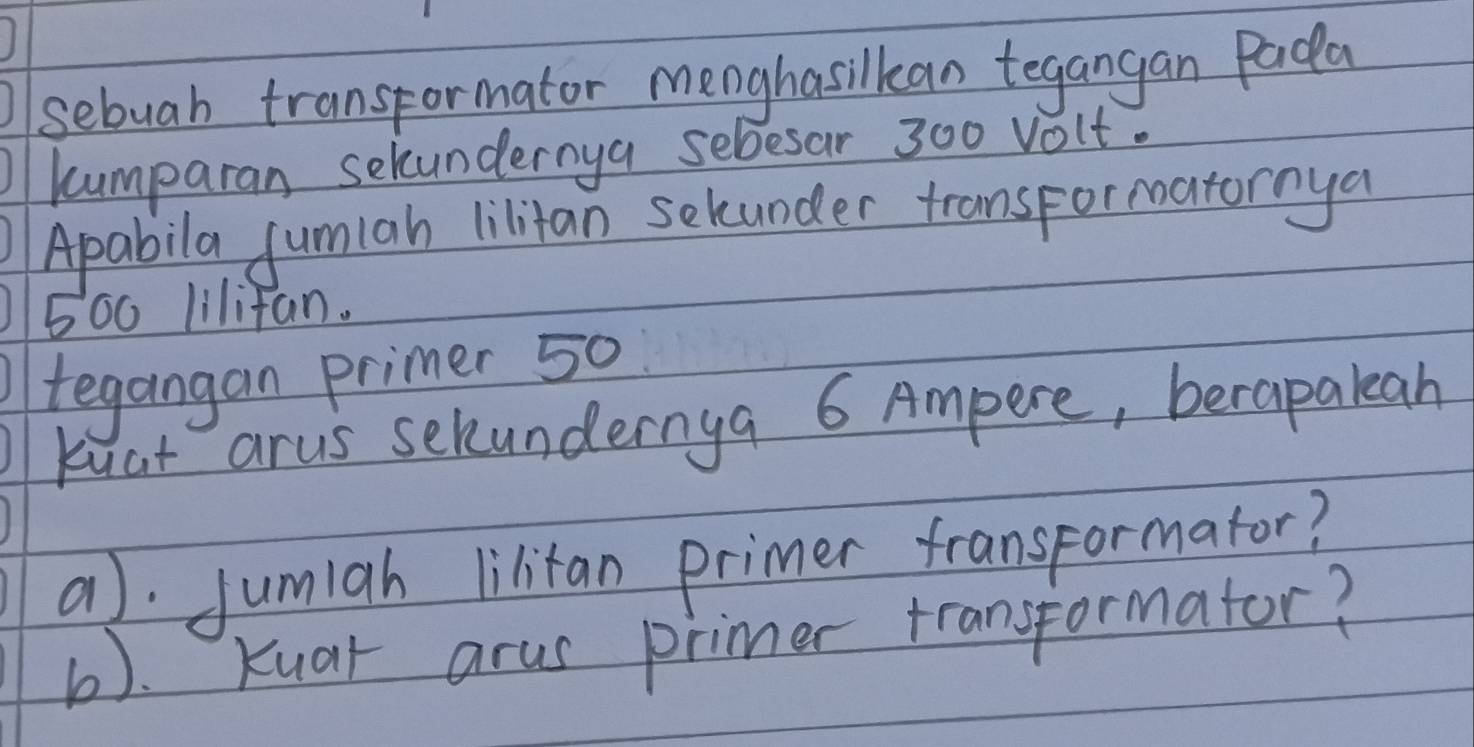 sebuah transformator menghasilkan tegangan pada
kumparan sekundernya sebesar 300 volt.
Apabila jumlah lilitan sekunder transformatornya
500 lilitan.
tegangan primer 50
kuat arus sekundernya 6 Ampere, berapakah
a). jumlah lilitan primer transformator?
b). kuat arus primer transformator?